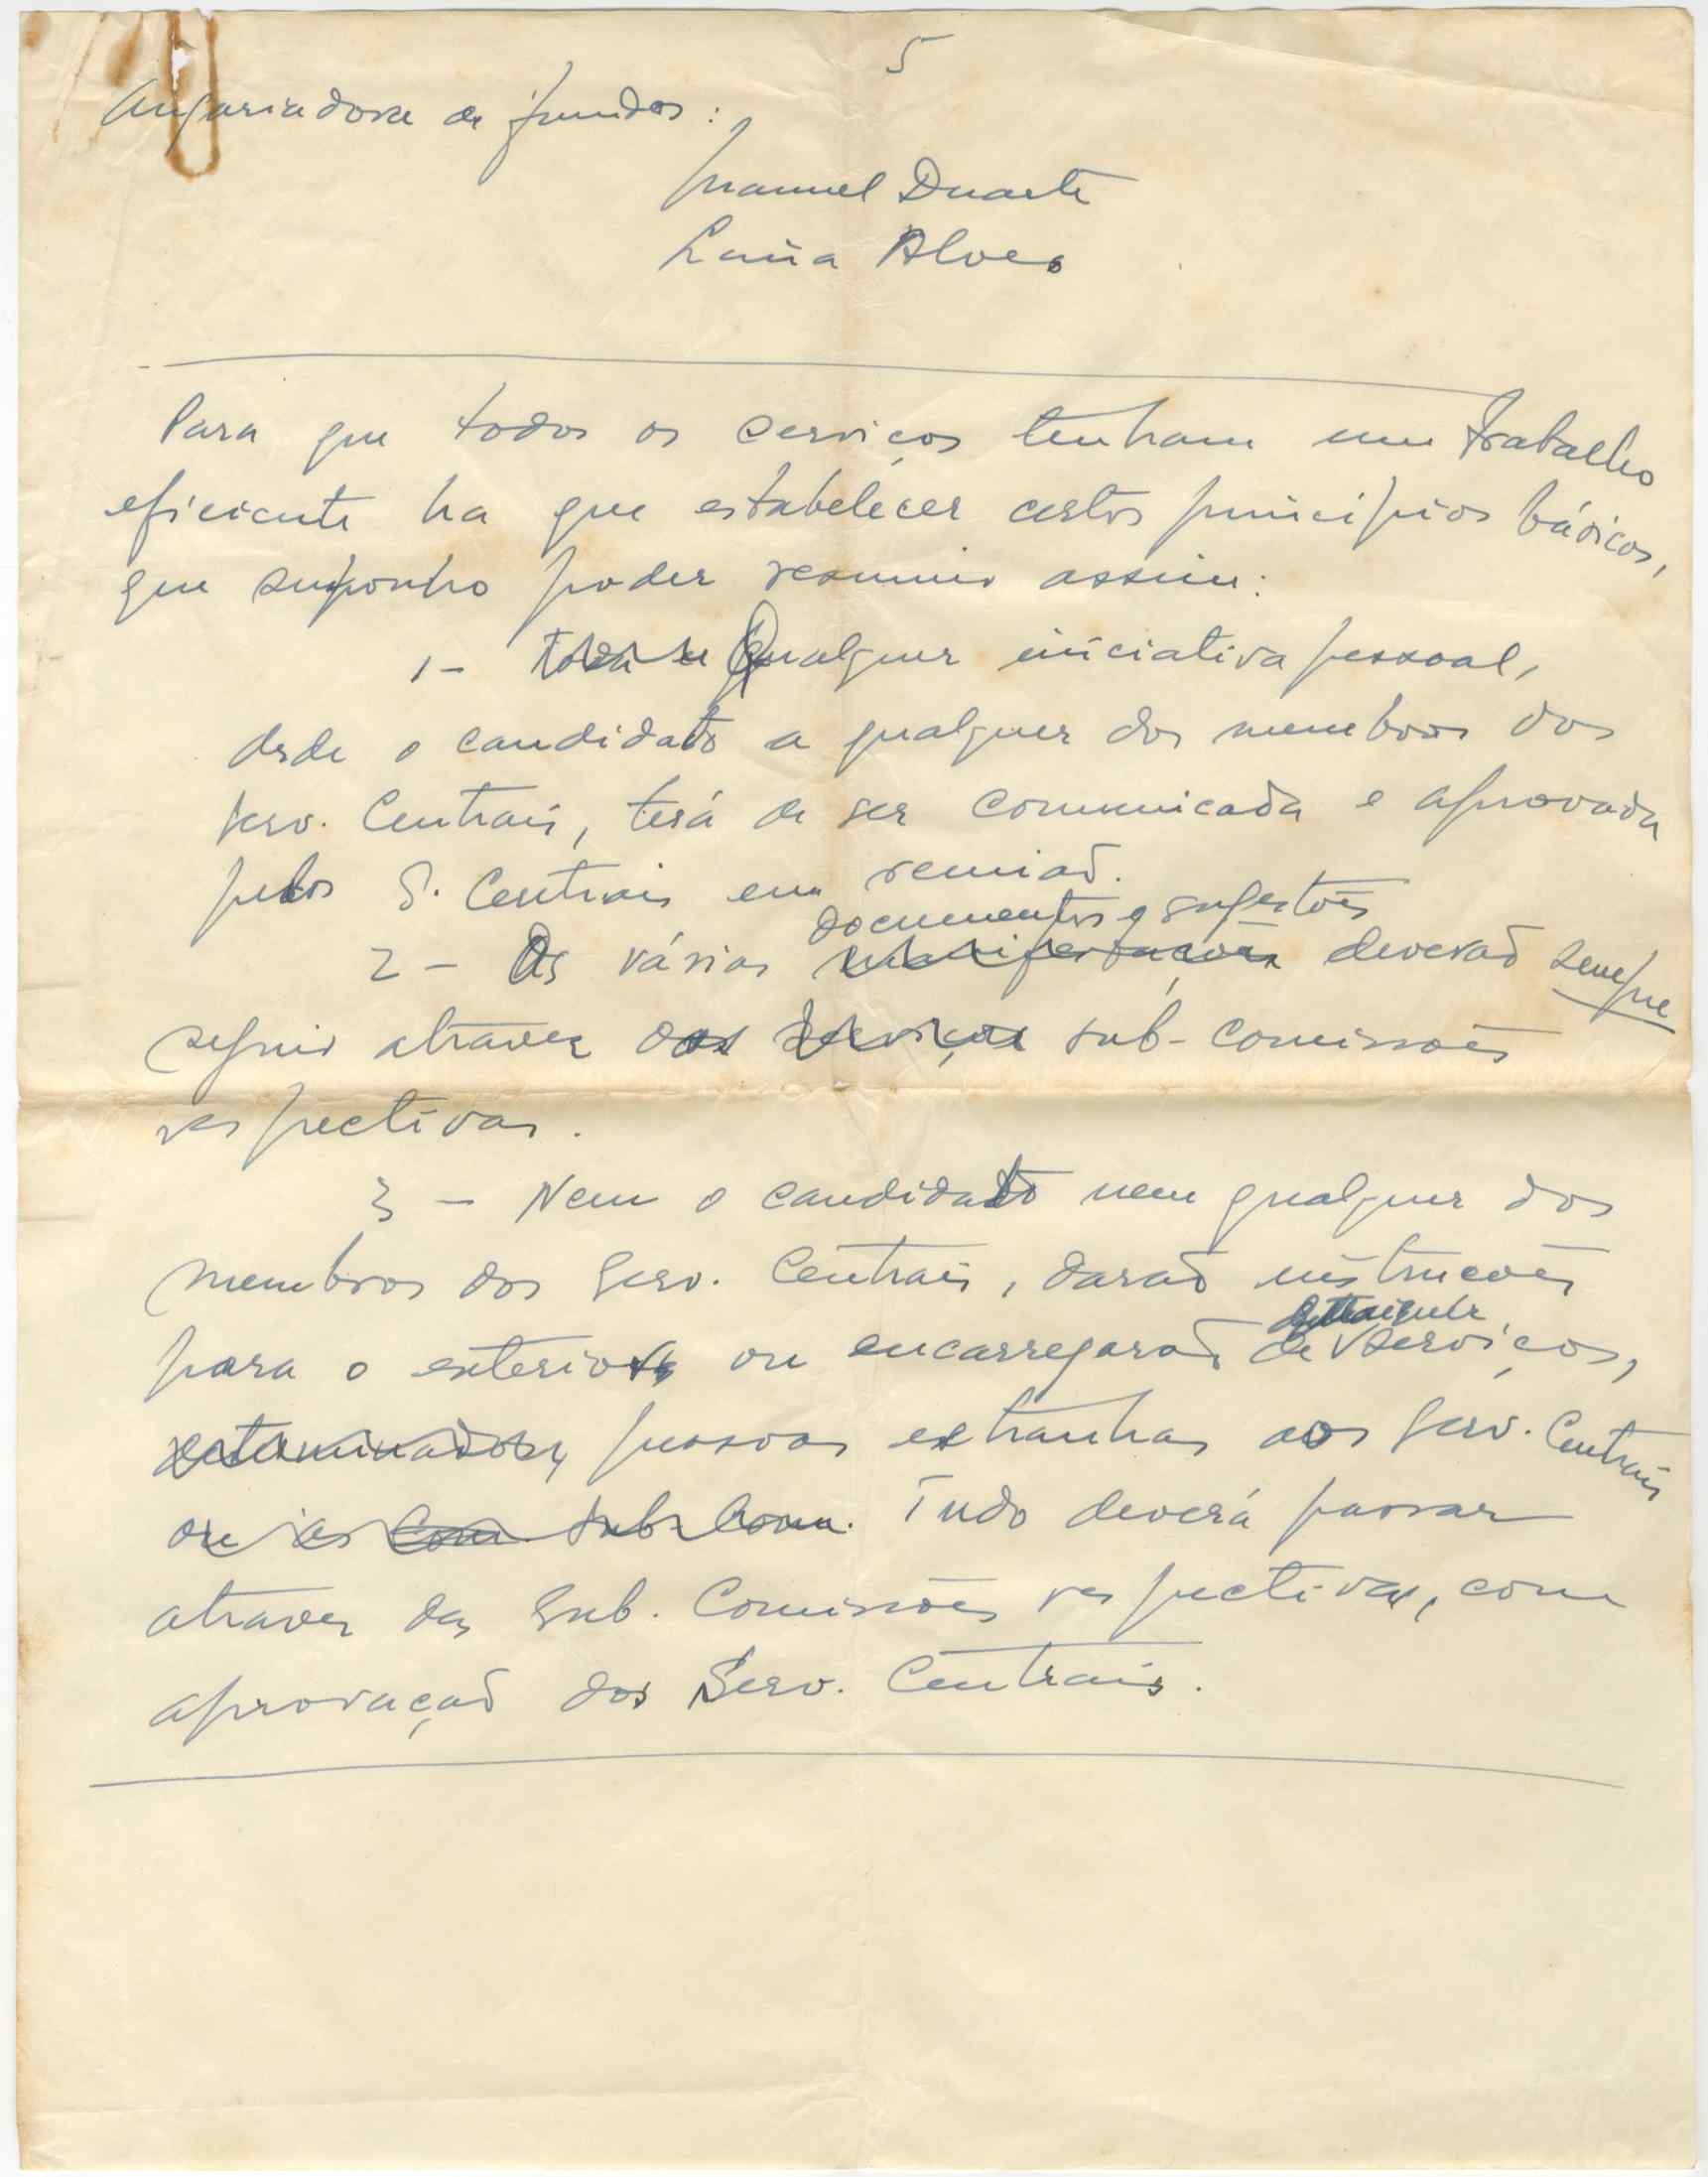 5
Angariadora de fundos:
Manuel Duarte
Alves
Para que todos os serviços tenham um trabalho
eficiente ha que estabelecer certos principios básicos,
que suponho poder resumir assim:
1 - Qualquer iniciativa pessoal,
desde o candidato a qualquer dos membros dos
Serv. Centrais, terá de ser comunicada e aprovada
pelos S. Centrais em reuniaõ.
documentos e sugestões
2 - Os vários manifestações deveraõ sempre
seguir atraves das serviços sub-comissões
respectivas.
3 - Nem o candidato nem qualquer dos
membros dos Serv. Centrais, daraõ instrucões
para o exterior ou encarregaraõ de serviços,
determinados, pessoas extranhas aos Serv. Centrais
ou às Com. Sub-Com. Tudo deverá passar
atraves das Sub. Comissões respectivas, com
aprovaçaõ dos Serv. Centrais.